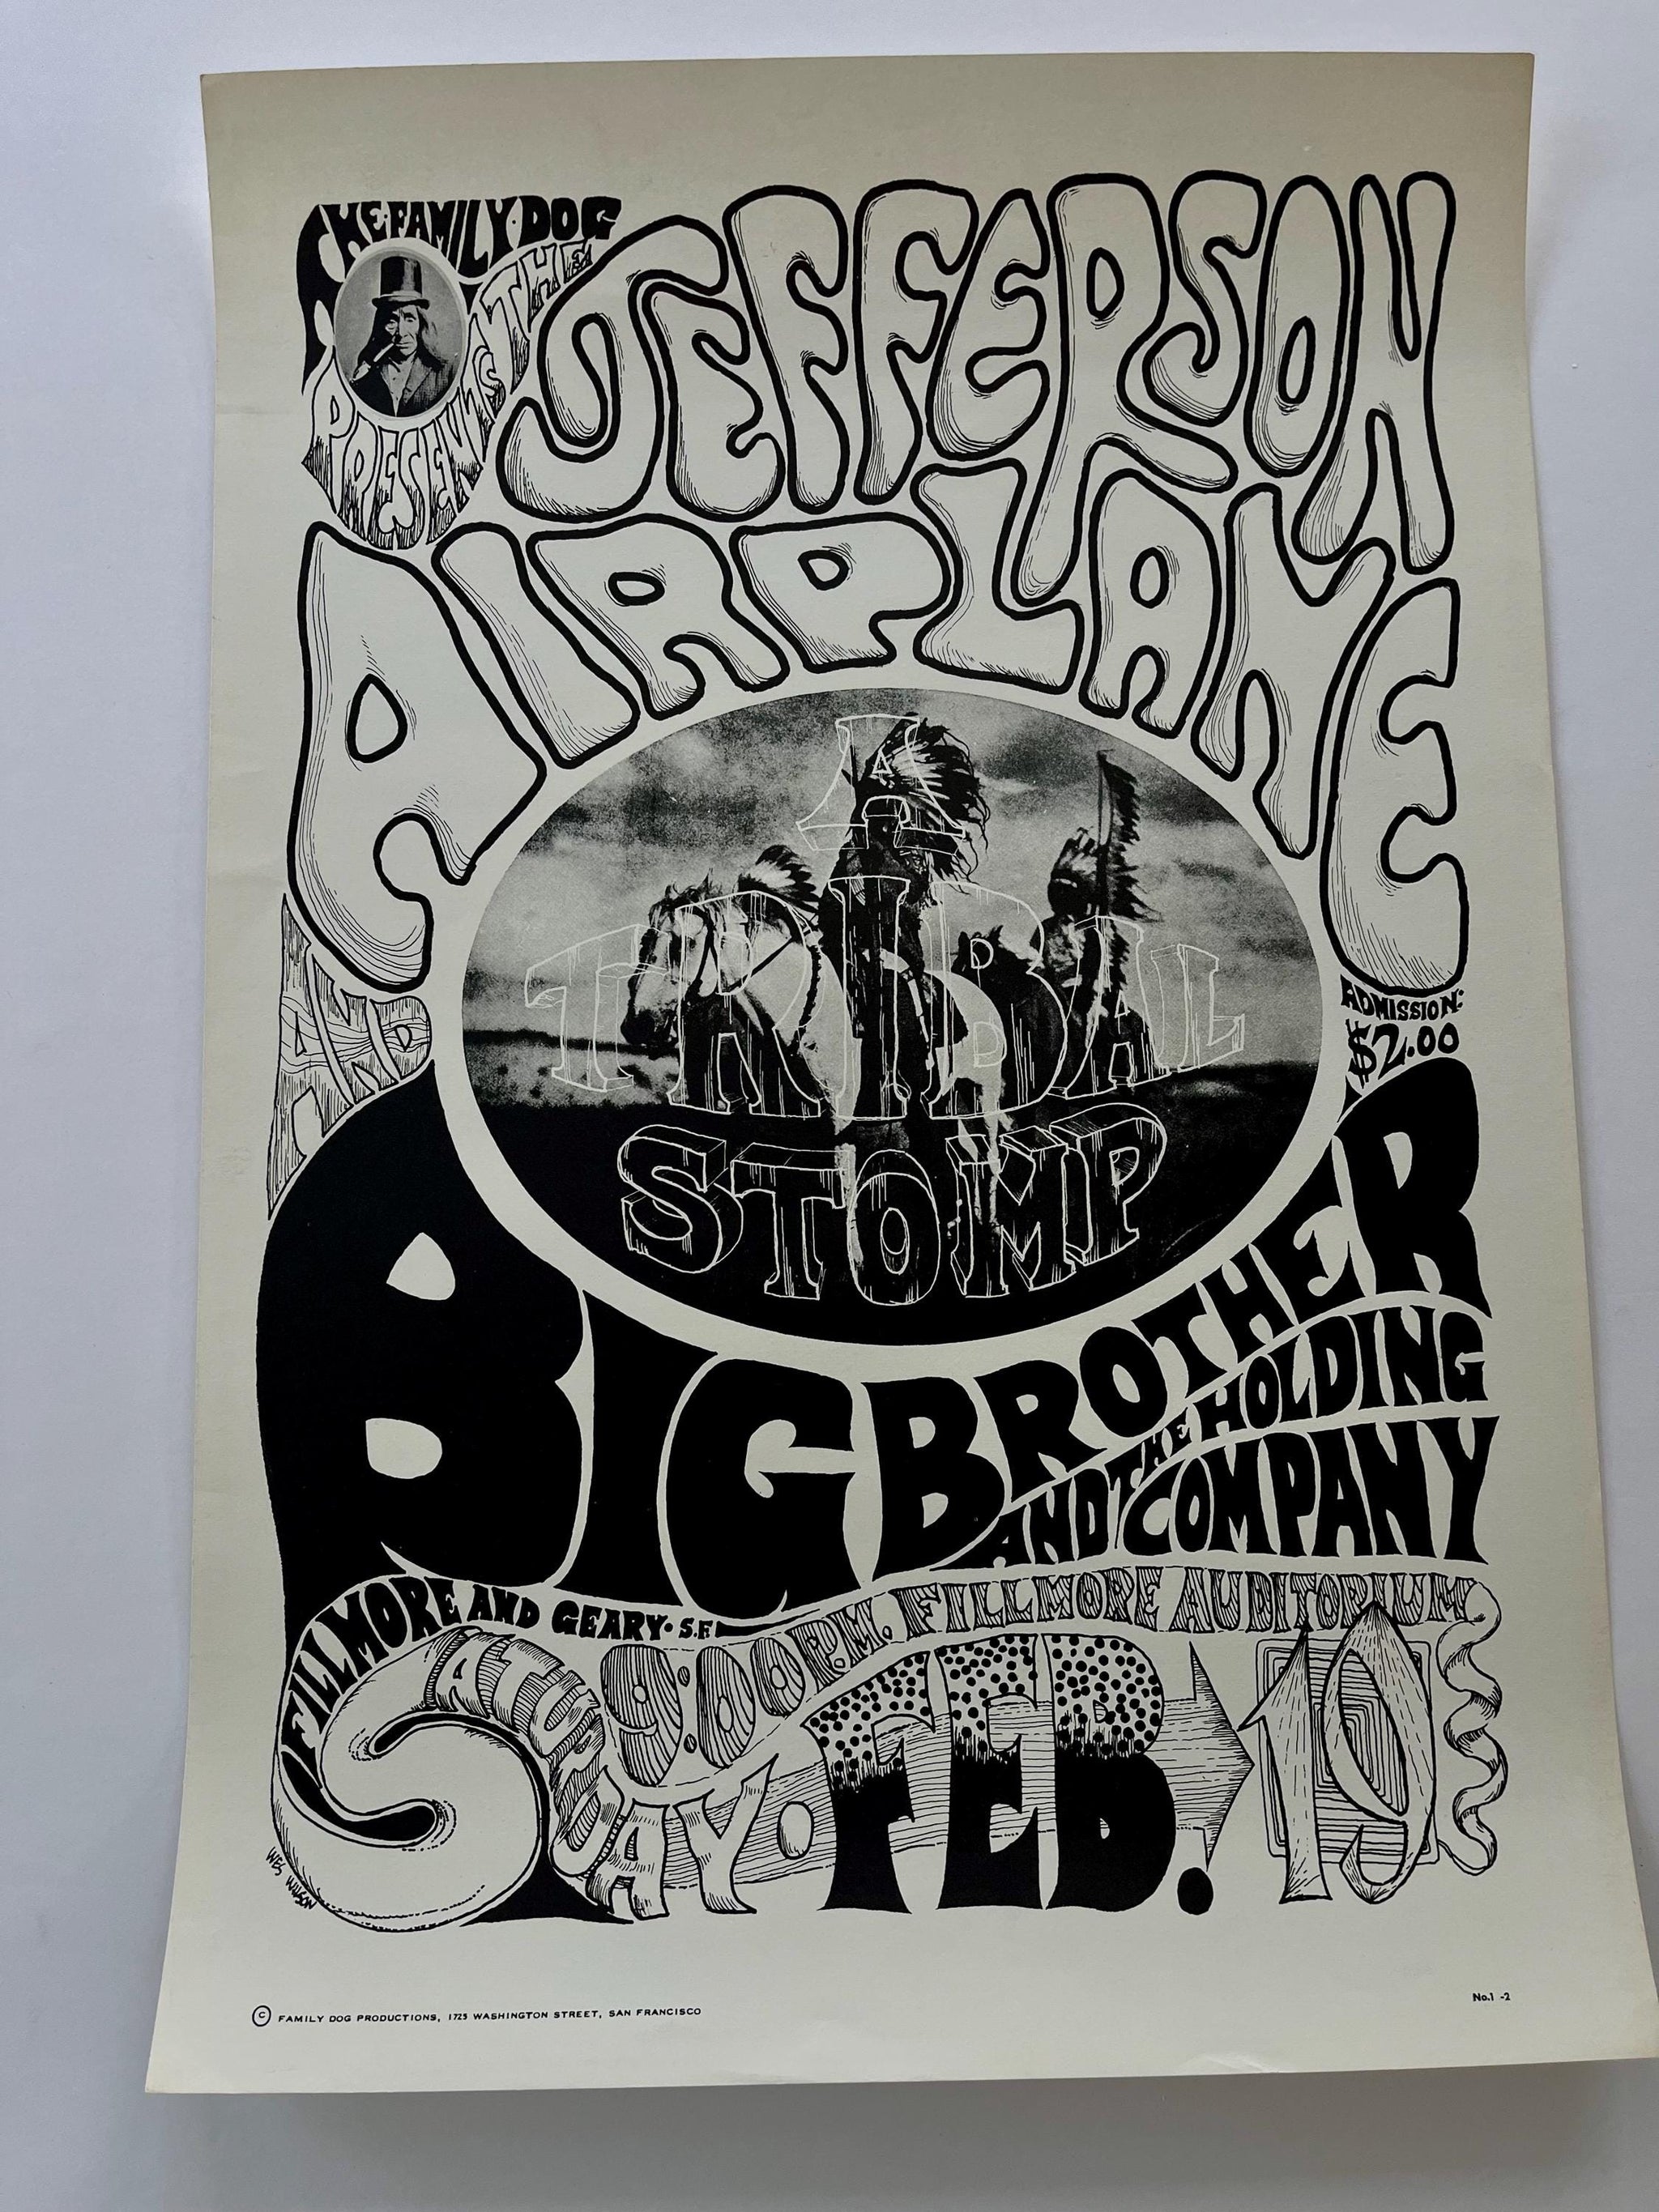 THE FAMILY DOG
PRESENTS THE
JEFFERSON
AIRPLANE
A
TRIBAL
STOMP
ADMISSION:
$2.00
AND
BIG BROTHER
AND THE HOLDING
COMPANY
FILLMORE AND GEARY·S.F.
9:00 P.M. FILLMORE AUDITORIUM
SATURDAY·FEB. 19
WES WILSON
© FAMILY DOG PRODUCTIONS, 1725 WASHINGTON STREET, SAN FRANCISCO
No.1 -2